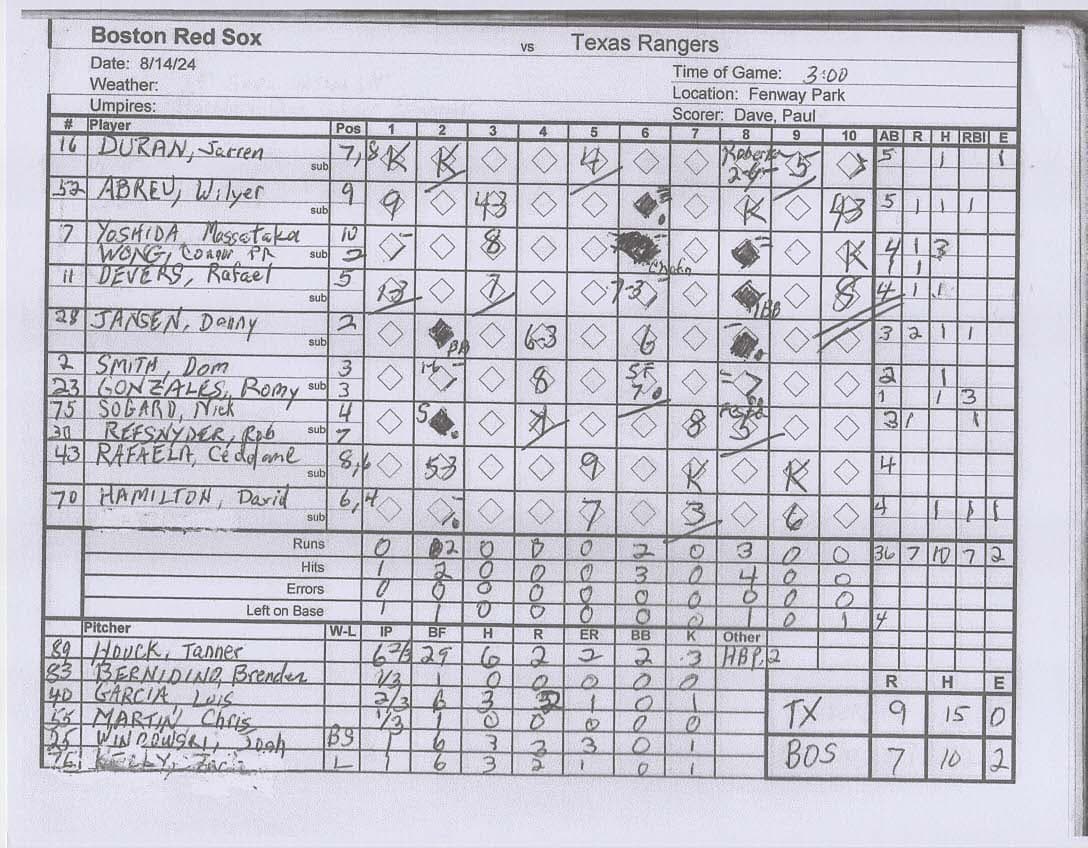 Boston Red Sox vs Texas Rangers
Date: 8/14/24
Time of Game: 3:00
Weather:
Location: Fenway Park
Umpires:
Scorer: Dave, Paul
# Player Pos 1 2 3 4 5 6 7 8 9 10 AB R H RBI E
16 DURAN, Jarren 7,8 K K 4 5 5 1 1
sub
52 ABREU, Wilyer 9 9 43 K 43 5 1 1 1
sub
7 YOSHIDA, Massataka 10 8 K 4 1 3
WONG, Connor PR sub 2 1 1
11 DEVERS, Rafael 5 1-3 7 7-3 IBB 8 4 1 1
sub
28 JANSEN, Danny 2 BB 63 6 3 2 1 1
sub
2 SMITH, Dom 3 8 SF 7 2 1
23 GONZALES, Romy sub 3 1 1 3
75 SOGARD, Nick 4 8 5 3 1 1
30 REFSNYDER, Rob sub 7
43 RAFAELA, Ceddanne 8,6 53 9 K K 4
sub
70 HAMILTON, David 6,4 7 3 6 4 1 1 1
sub
Runs 0 2 0 0 0 2 0 3 0 0 36 7 10 7 2
Hits 1 2 0 0 0 3 0 4 0 0
Errors 0 0 0 0 0 0 0 0 0 0
Left on Base 1 1 0 0 0 0 0 1 0 1 4
Pitcher W-L IP BF H R ER BB K Other
89 HOUCK, Tanner 6 2/3 29 6 2 2 2 3 HBP, 2
83 BERNIDINO, Brenden 1/3 1 0 0 0 0 0
40 GARCIA, Luis 2/3 6 3 1 0 1
55 MARTIN, Chris 1/3 1 0 0 0 0 0
WINDOWSKI, Josh BS 1 6 3 3 3 0 1
76 KELLY, Zack L 1 6 3 2 1 0 1
R H E
TX 9 15 0
BOS 7 10 2